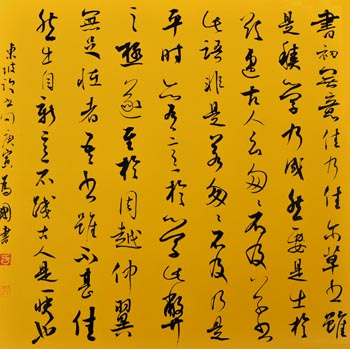 書初無意佳乃佳尔草書雖
是積學乃成然要是出於
欲速古人云匆匆不及草書
此語非是若匆匆不及乃是
平時亦有意於學此弊
之極遂至於周越仲翼
無足怪者吾書雖不甚佳
然自出新意不踐古人是一快也
東坡論書句庚寅國書